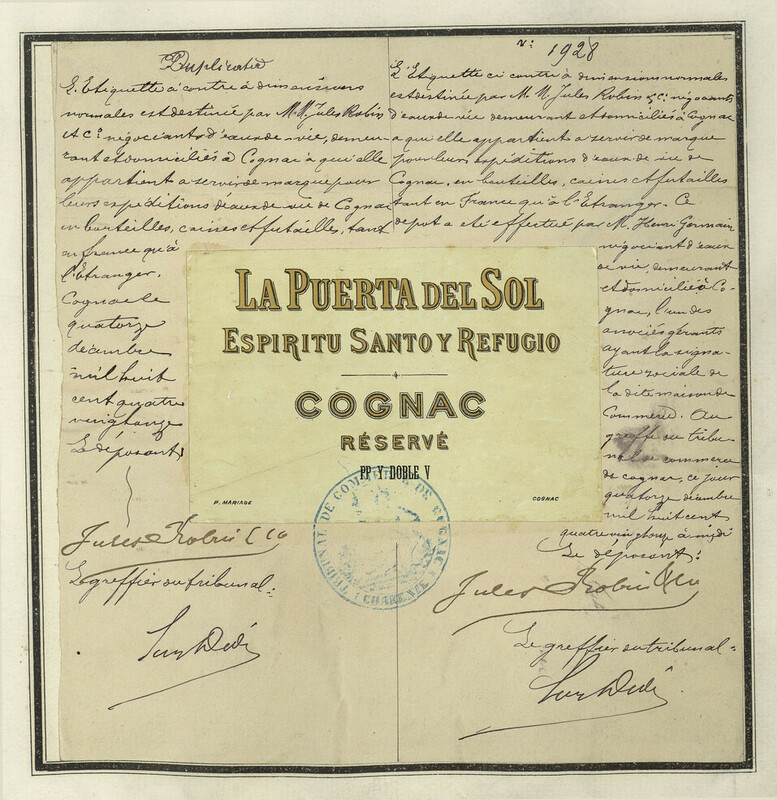 Duplicata
L'Etiquette ci contre à dimensions
normales est destinée par M.M. Jules Robin
& Cº négociants d'eaux de vie, demeu-
rant et domiciliés à Cognac à qui elle
appartient a servir de marque pour
leurs expéditions d'eaux de vie de Cognac
en bouteilles, caisses et futailles, tant
en france qu'à
l'Étranger.
Cognac le
quatorze
décembre
mil huit
cent quatre
vingt onze
Le déposant,
Jules Robin & Co
Le greffier du tribunal:
nº 1928
L'Etiquette ci contre à dimensions normales
est destinée par M. M. Jules Robin & Cº négociants
d'eaux de vie demeurant et domiciliés à Cognac
a qui elle appartient a servir de marque
pour leurs expéditions d'eaux de vie de
Cognac, en bouteilles, caisses et futailles
tant en France qu'à l'Étranger. Ce
depot a été effectué par M. Henri Germain
négociant d'eaux
de vie, demeurant
et domicilié à Co-
gnac, l'un des
associés gérants
ayant la signa-
ture sociale de
la dite maison de
Commerce. Au
greffe du tribu-
nal de commerce
de cognac, ce jour
quatorze décembre
mil huit cent
quatre vingt onze à midi
Le déposant:
Jules Robin & Co
Le greffier du tribunal:
LA PUERTA DEL SOL
ESPIRITU SANTO Y REFUGIO
COGNAC
RÉSERVÉ
PP Y DOBLE V
P. MARIAGE
COGNAC
TRIBUNAL DE COMMERCE DE COGNAC
(CHARENTE)